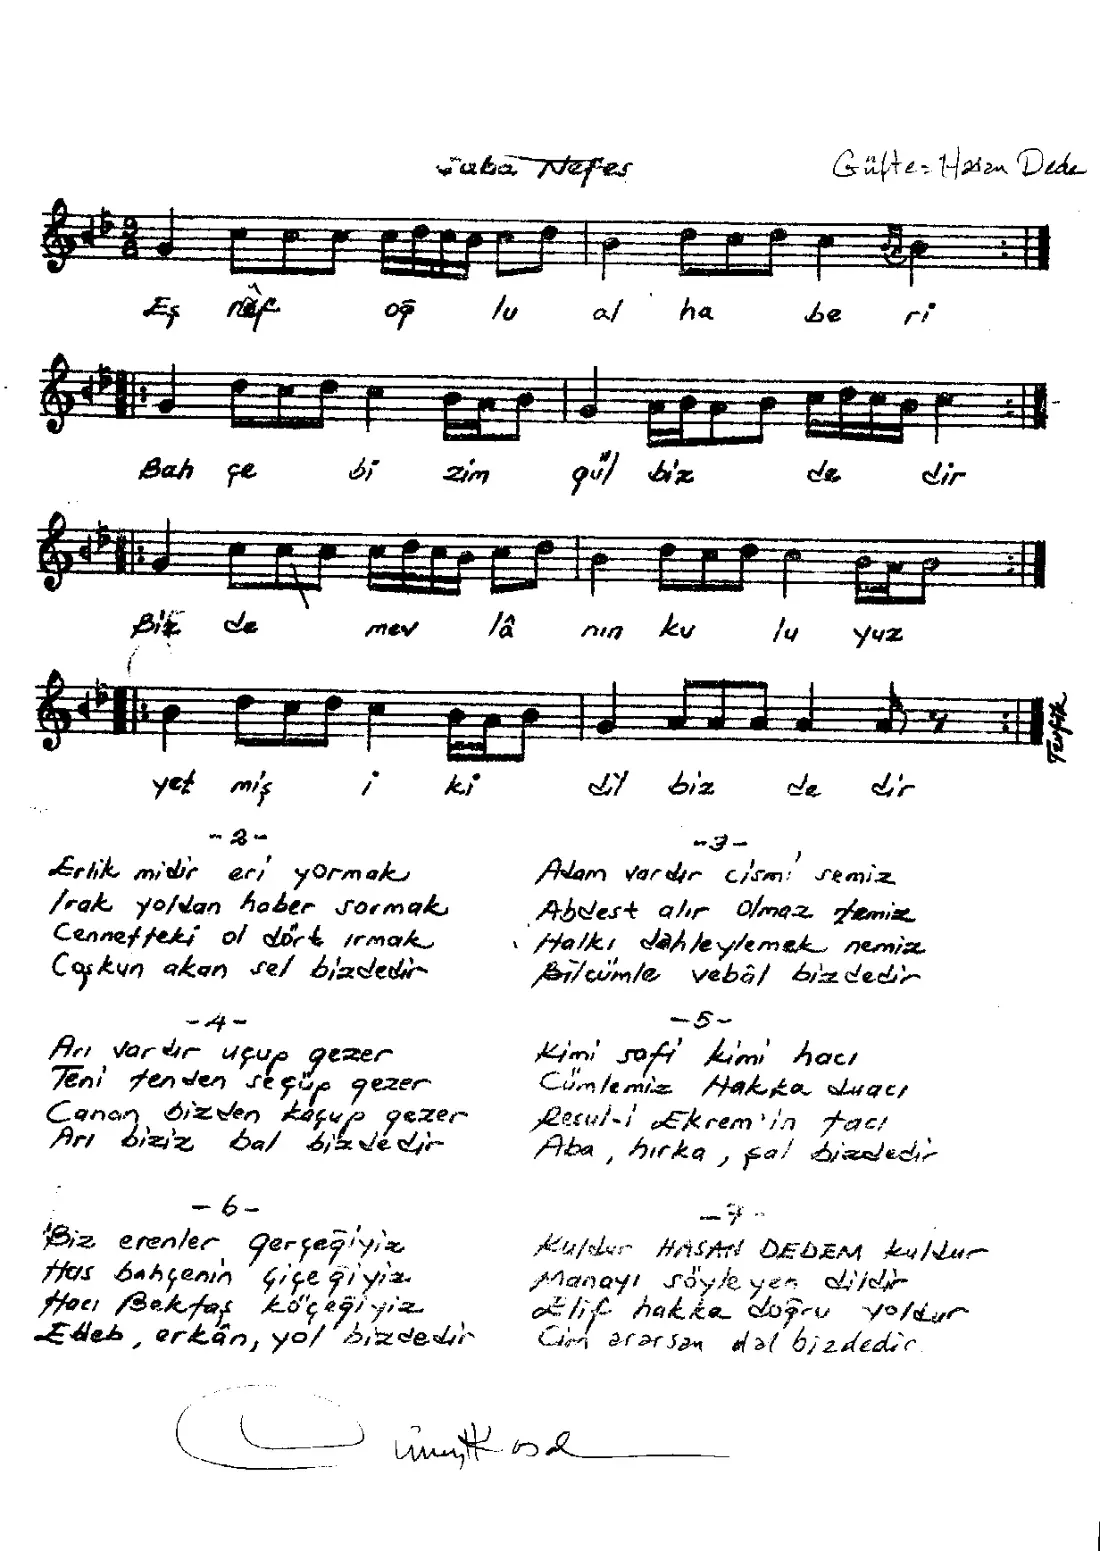 Saba Nefes
Güfte: Hasan Dede
Eş râf oğ lu al ha be ri
Bah çe bi zim gül biz de dir
Biz de mev lâ nın ku lu yuz
yet miş i ki dil biz de dir
Tevfik
-2-
Erlik midir eri yormak
Irak yoldan haber sormak
Cennetteki ol dört ırmak
Coşkun akan sel bizdedir
-3-
Adam vardır cismi semiz
Abdest alır olmaz temiz
Halkı dahleylemek nemiz
Bilcümle vebâl bizdedir
-4-
Arı vardır uçup gezer
Teni tenden seçüp gezer
Canan bizden kaçup gezer
Arı biziz bal bizdedir
-5-
Kimi sofi kimi hacı
Cümlemiz Hakka duacı
Resul-i Ekrem'in tacı
Aba, hırka, şal bizdedir
-6-
Biz erenler gerçeğiyiz
Has bahçenin çiçeğiyiz
Hacı Bektaş köçeğiyiz
Edeb, erkân, yol bizdedir
-7-
Kuldur HASAN DEDEM kuldur
Manayı söyleyen dildir
Elif hakka doğru yoldur
Cim ararsan dal bizdedir.